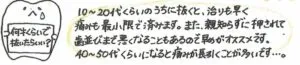 何才くらいで
抜いたらいい?
10〜20代くらいのうちに抜くと、治りも早く
痛みも最小限で済みます。また、親知らずに押されて
歯並びまで悪くなることもあるので早めがオススメです。
40〜50代くらいになると痛みが長引くことが多いです…。